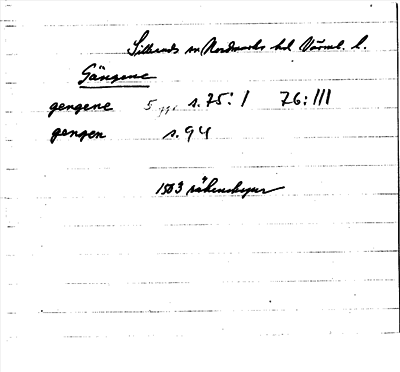 Sillerud sn Nordmarks hd Värml. l.
Gängene
gengene 5 ggr s. 75: I 76: III
gengen s. 94
1503 räkenskaper